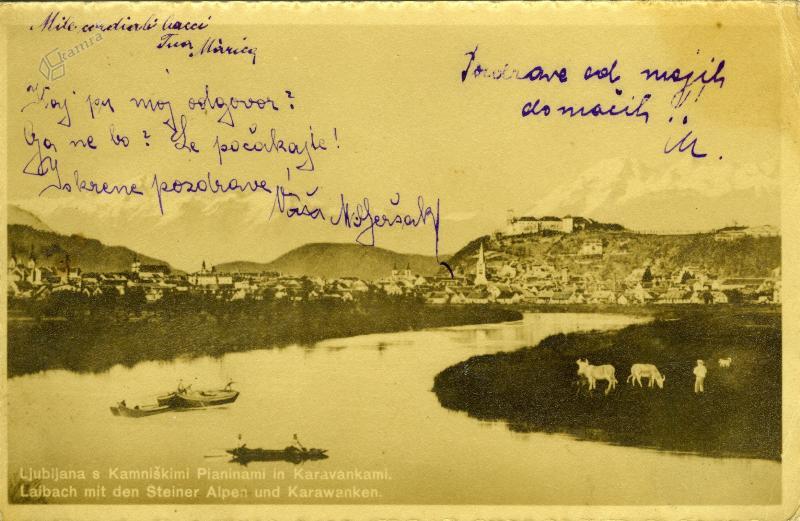 Mile cordiali bacci
Tua Marica
kamra
Pozdrave od mojih
domačih!!
M.
Kaj pa moj odgovor?
Ga ne bo? Le počakajte!
Iskrene pozdrave!
Vaša M.
Ljubljana s Kamniškimi Planinami in Karavankami.
Laibach mit den Steiner Alpen und Karawanken.